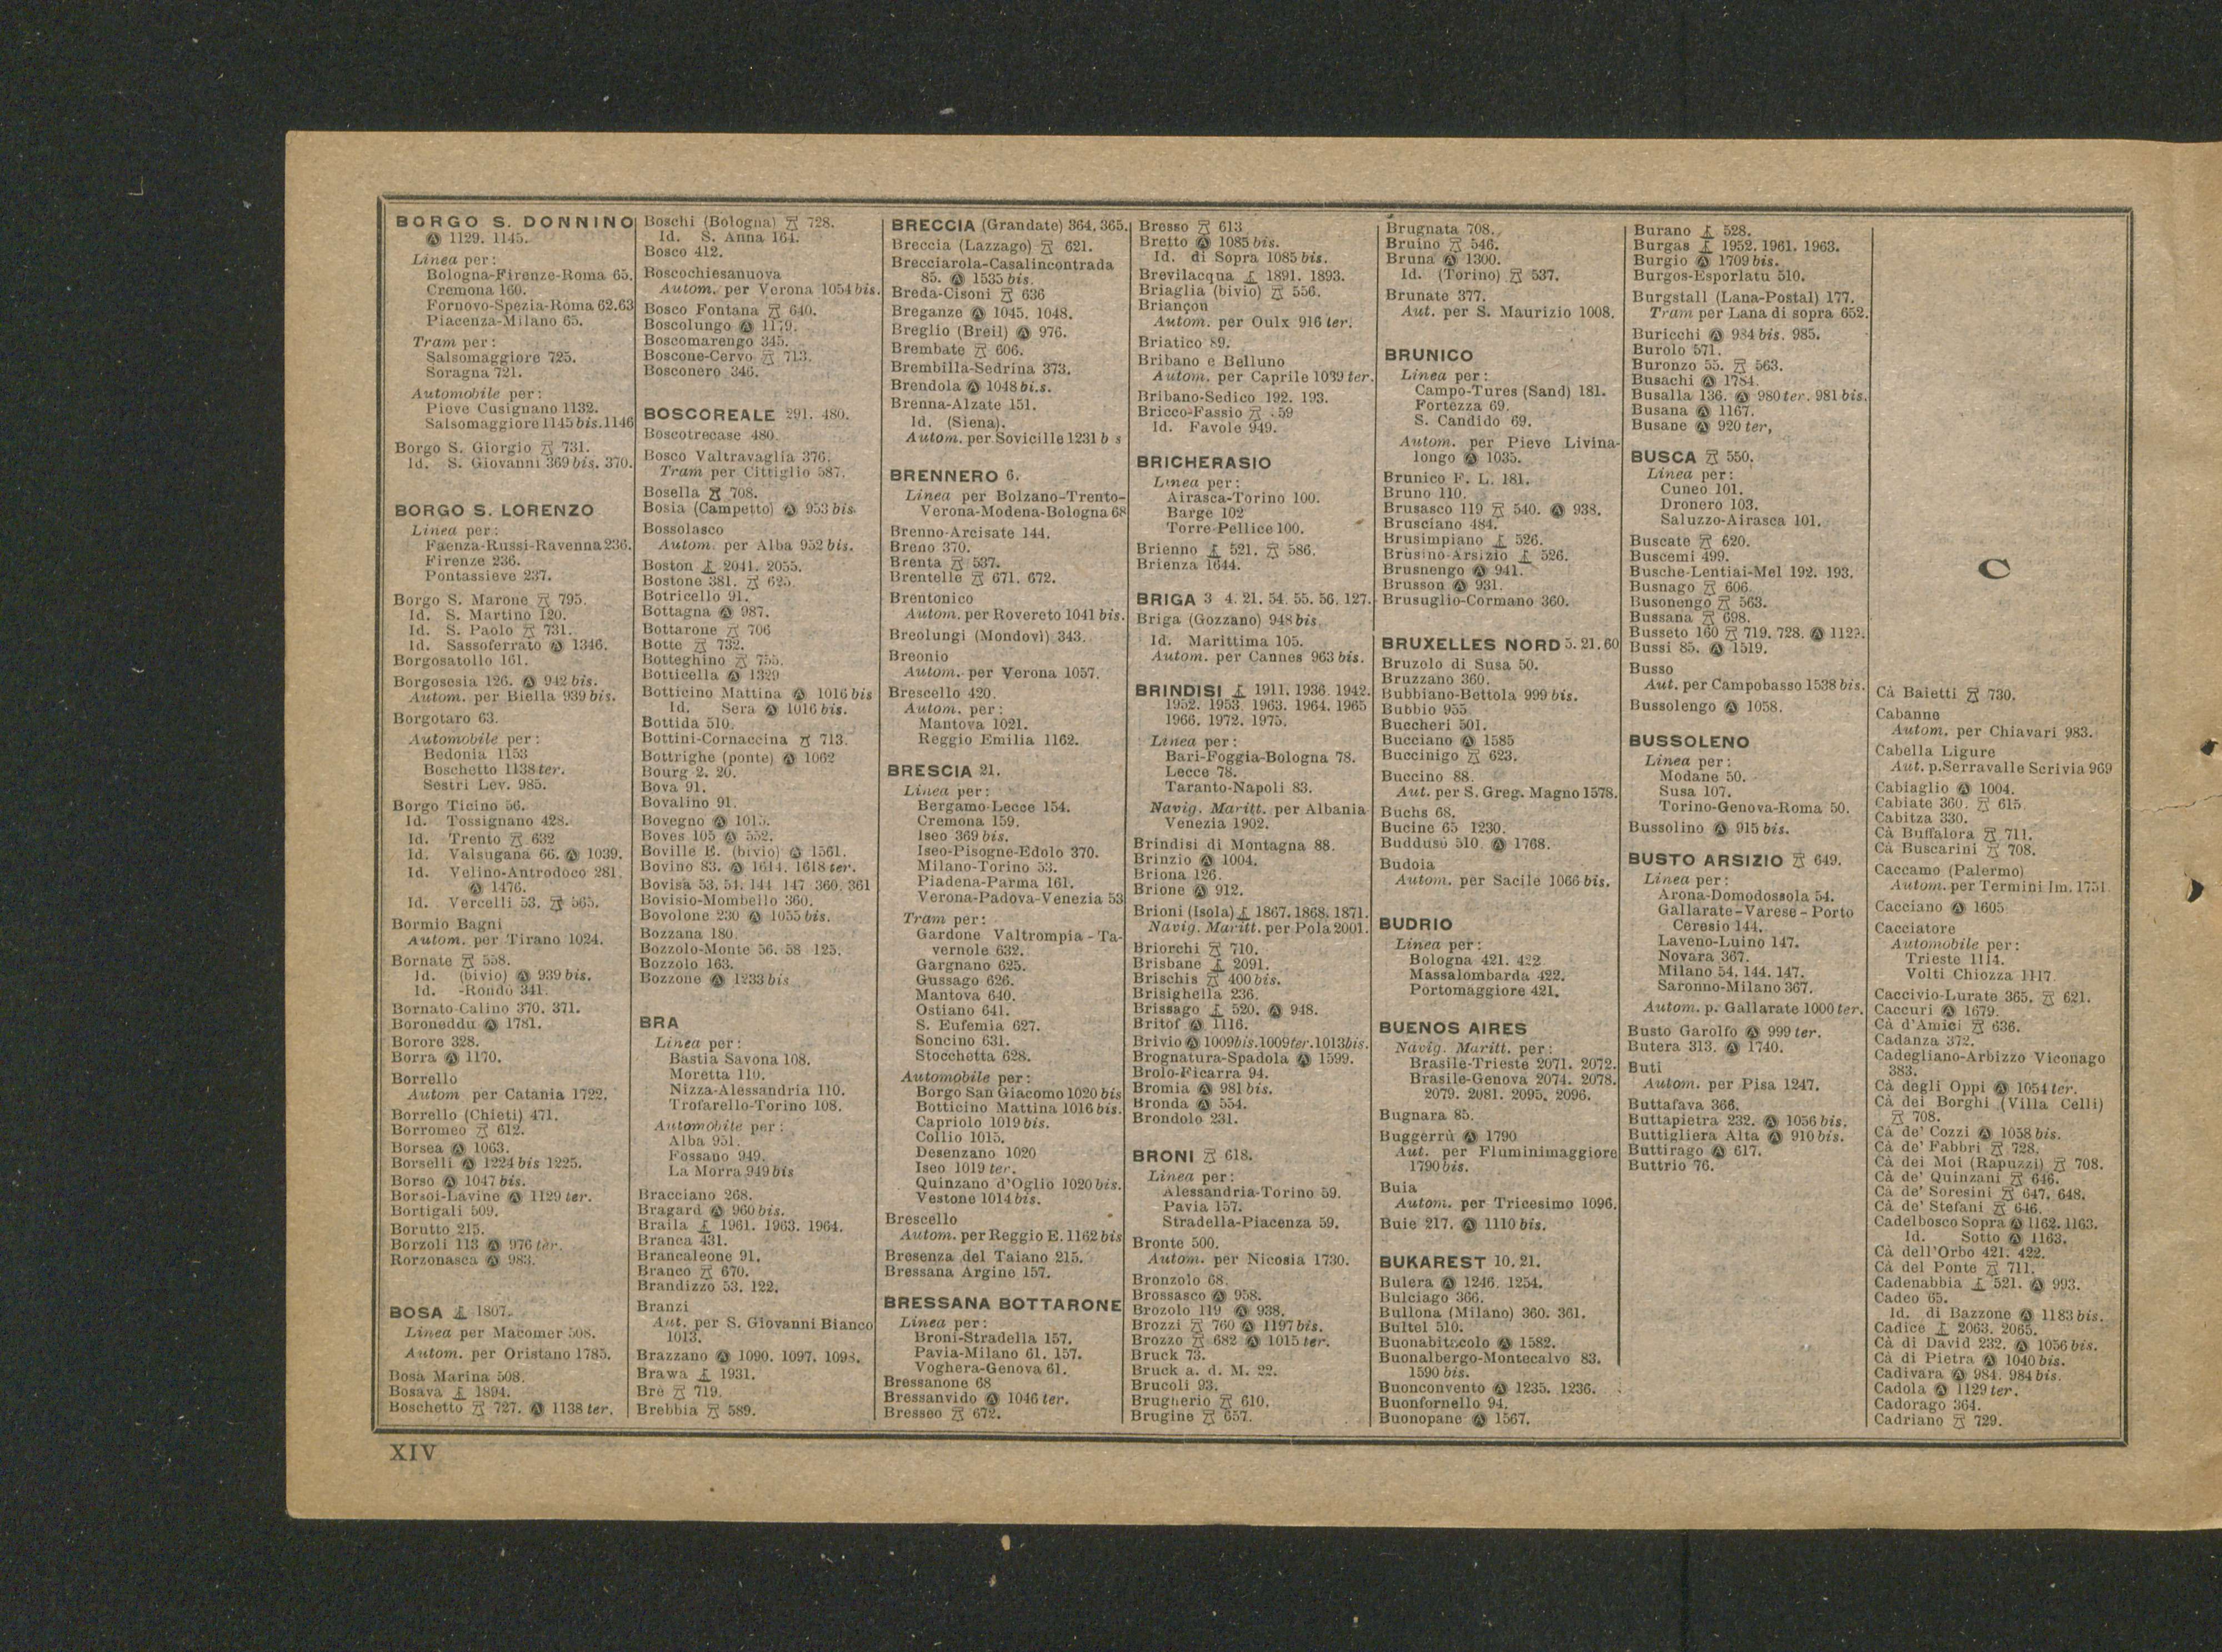 BORGO S. DONNINO
Ⓐ 1129. 1145.
Linea per:
Bologna-Firenze-Roma 65.
Cremona 160.
Fornovo-Spezia-Roma 62.63
Piacenza-Milano 65.
Tram per:
Salsomaggiore 725.
Soragna 721.
Automobile per:
Pieve Cusignano 1132.
Salsomaggiore 1145 bis. 1146
Borgo S. Giorgio 731.
Id. S. Giovanni 369 bis. 370.
BORGO S. LORENZO
Linea per:
Faenza-Russi-Ravenna 236.
Firenze 236.
Pontassieve 237.
Borgo S. Marone 795.
Id. S. Martino 120.
Id. S. Paolo 731.
Id. Sassoferrato Ⓐ 1346.
Borgosatollo 161.
Borgosesia 126. Ⓐ 942 bis.
Autom. per Biella 939 bis.
Borgotaro 63.
Automobile per:
Bedonia 1153
Boschetto 1138 ter.
Sestri Lev. 985.
Borgo Ticino 56.
Id. Tossignano 428.
Id. Trento 632
Id. Valsugana 66. Ⓐ 1039.
Id. Velino-Antrodoco 281.
Ⓐ 1476.
Id. Vercelli 53. 565.
Bormio Bagni
Autom. per Tirano 1024.
Bornate 558.
Id. (bivio) Ⓐ 939 bis.
Id. -Rondò 341.
Bornato-Calino 370. 371.
Boroneddu Ⓐ 1781.
Borore 328.
Borra Ⓐ 1170.
Borrello
Autom. per Catania 1722.
Borrello (Chieti) 471.
Borromeo 612.
Borsea Ⓐ 1063.
Borselli Ⓐ 1224 bis 1225.
Borso Ⓐ 1047 bis.
Borsoi-Lavine Ⓐ 1129 ter.
Bortigali 509.
Borutto 215.
Borzoli 113 Ⓐ 976 ter.
Rorzonasca Ⓐ 983.
BOSA 1807.
Linea per Macomer 508.
Autom. per Oristano 1785.
Bosa Marina 508.
Bosava 1894.
Boschetto 727. Ⓐ 1138 ter.
Boschi (Bologna) 728.
Id. S. Anna 164.
Bosco 412.
Boscochiesanuova
Autom. per Verona 1054 bis.
Bosco Fontana 640.
Boscolungo Ⓐ 1179.
Boscomarengo 345.
Boscone-Cervo 713.
Bosconero 346.
BOSCOREALE 291. 480.
Boscotrecase 480.
Bosco Valtravaglia 376.
Tram per Cittiglio 587.
Bosella 708.
Bosia (Campetto) Ⓐ 953 bis.
Bossolasco
Autom. per Alba 952 bis.
Boston 2041. 2055.
Bostone 381. 625.
Botricello 91.
Bottagna Ⓐ 987.
Bottarone 706
Botte 732.
Botteghino 755.
Botticella Ⓐ 1329
Botticino Mattina Ⓐ 1016 bis
Id. Sera Ⓐ 1016 bis.
Bottida 510.
Bottini-Cornaccina 713.
Bottrighe (ponte) Ⓐ 1062
Bourg 2. 20.
Bova 91.
Bovalino 91.
Bovegno Ⓐ 1015.
Boves 105 Ⓐ 552.
Boville E. (bivio) Ⓐ 1561.
Bovino 83. Ⓐ 1614. 1618 ter.
Bovisa 53. 54. 144 147 360. 361
Bovisio-Mombello 360.
Bovolone 230 Ⓐ 1055 bis.
Bozzana 180.
Bozzolo-Monte 56. 58 125.
Bozzolo 163.
Bozzone Ⓐ 1233 bis
BRA
Linea per:
Bastia Savona 108.
Moretta 110.
Nizza-Alessandria 110.
Trofarello-Torino 108.
Automobile per:
Alba 951.
Fossano 949.
La Morra 949 bis
Bracciano 268.
Bragard Ⓐ 960 bis.
Braila 1961. 1963. 1964.
Branca 431.
Brancaleone 91.
Branco 670.
Brandizzo 53. 122.
Branzi
Aut. per S. Giovanni Bianco
1013.
Brazzano Ⓐ 1090. 1097. 1098.
Brawa 1931.
Bre 719.
Brebbia 589.
BRECCIA (Grandate) 364. 365.
Breccia (Lazzago) 621.
Brecciarola-Casalincontrada
85. Ⓐ 1535 bis.
Breda-Cisoni 636
Breganze Ⓐ 1045. 1048.
Breglio (Breil) Ⓐ 976.
Brembate 606.
Brembilla-Sedrina 373.
Brendola Ⓐ 1048 bi.s.
Brenna-Alzate 151.
Id. (Siena).
Autom. per Sovicille 1231 b s
BRENNERO 6.
Linea per Bolzano-Trento-
Verona-Modena-Bologna 68
Brenno-Arcisate 144.
Breno 370.
Brenta 537.
Brentelle 671. 672.
Brentonico
Autom. per Rovereto 1041 bis.
Breolungi (Mondovì) 343.
Breonio
Autom. per Verona 1057.
Brescello 420.
Autom. per:
Mantova 1021.
Reggio Emilia 1162.
BRESCIA 21.
Linea per:
Bergamo-Lecce 154.
Cremona 159.
Iseo 369 bis.
Iseo-Pisogne-Edolo 370.
Milano-Torino 53.
Piadena-Parma 161.
Verona-Padova-Venezia 53
Tram per:
Gardone Valtrompia - Ta-
vernole 632.
Gargnano 625.
Gussago 626.
Mantova 640.
Ostiano 641.
S. Eufemia 627.
Soncino 631.
Stocchetta 628.
Automobile per:
Borgo San Giacomo 1020 bis
Botticino Mattina 1016 bis.
Capriolo 1019 bis.
Collio 1015.
Desenzano 1020
Iseo 1019 ter.
Quinzano d'Oglio 1020 bis.
Vestone 1014 bis.
Brescello
Autom. per Reggio E. 1162 bis
Bresenza del Taiano 215.
Bressana Argine 157.
BRESSANA BOTTARONE
Linea per:
Broni-Stradella 157.
Pavia-Milano 61. 157.
Voghera-Genova 61.
Bressanone 68
Bressanvido Ⓐ 1046 ter.
Bresseo 672.
Bresso 613
Bretto Ⓐ 1085 bis.
Id. di Sopra 1085 bis.
Brevilacqua 1891. 1893.
Briaglia (bivio) 556.
Briançon
Autom. per Oulx 916 ter.
Briatico 89.
Bribano e Belluno
Autom. per Caprile 1039 ter.
Bribano-Sedico 192. 193.
Bricco-Fassio 59
Id. Favole 949.
BRICHERASIO
Linea per:
Airasca-Torino 100.
Barge 102
Torre-Pellice 100.
Brienno 521. 586.
Brienza 1644.
BRIGA 3 4. 21. 54. 55. 56. 127.
Briga (Gozzano) 948 bis.
Id. Marittima 105.
Autom. per Cannes 963 bis.
BRINDISI 1911. 1936. 1942.
1952. 1953. 1963. 1964. 1965
1966. 1972. 1975.
Linea per:
Bari-Foggia-Bologna 78.
Lecce 78.
Taranto-Napoli 83.
Navig. Maritt. per Albania
Venezia 1902.
Brindisi di Montagna 88.
Brinzio Ⓐ 1004.
Briona 126.
Brione Ⓐ 912.
Brioni (Isola) 1867. 1868. 1871.
Navig. Maritt. per Pola 2001.
Briorchi 710.
Brisbane 2091.
Brischis 400 bis.
Brisighella 236.
Brissago 520. Ⓐ 948.
Britof Ⓐ 1116.
Brivio Ⓐ 1009 bis. 1009 ter. 1013 bis.
Brognatura-Spadola Ⓐ 1599.
Brolo-Ficarra 94.
Bromia Ⓐ 981 bis.
Bronda Ⓐ 554.
Brondolo 231.
BRONI 618.
Linea per:
Alessandria-Torino 59.
Pavia 157.
Stradella-Piacenza 59.
Bronte 500.
Autom. per Nicosia 1730.
Bronzolo 68.
Brossasco Ⓐ 958.
Brozolo 119 Ⓐ 938.
Brozzi 760 Ⓐ 1197 bis.
Brozzo 682 Ⓐ 1015 ter.
Bruck 73.
Bruck a. d. M. 22.
Brucoli 93.
Brugherio 610.
Brugine 657.
Brugnata 708.
Bruino 546.
Bruna Ⓐ 1300.
Id. (Torino) 537.
Brunate 377.
Aut. per S. Maurizio 1008.
BRUNICO
Linea per:
Campo-Tures (Sand) 181.
Fortezza 69.
S. Candido 69.
Autom. per Pieve Livina-
longo Ⓐ 1035.
Brunico F. L. 181.
Bruno 110.
Brusasco 119 540. Ⓐ 938.
Brusciano 484.
Brusimpiano 526.
Brusino-Arsizio 526.
Brusnengo Ⓐ 941.
Brusson Ⓐ 931.
Brusuglio-Cormano 360.
BRUXELLES NORD 5. 21. 60
Bruzolo di Susa 50.
Bruzzano 360.
Bubbiano-Bettola 999 bis.
Bubbio 955
Buccheri 501.
Bucciano Ⓐ 1585
Buccinigo 623.
Buccino 88.
Aut. per S. Greg. Magno 1578.
Buchs 68.
Bucine 65 1230.
Buddusò 510. Ⓐ 1768.
Budoia
Autom. per Sacile 1066 bis.
BUDRIO
Linea per:
Bologna 421. 422
Massalombarda 422.
Portomaggiore 421.
BUENOS AIRES
Navig. Maritt. per:
Brasile-Trieste 2071. 2072.
Brasile-Genova 2074. 2078.
2079. 2081. 2095. 2096.
Bugnara 85.
Buggerrù Ⓐ 1790
Aut. per Fluminimaggiore
1790 bis.
Buia
Autom. per Tricesimo 1096.
Buie 217. Ⓐ 1110 bis.
BUKAREST 10. 21.
Bulera Ⓐ 1246. 1254.
Bulciago 366.
Bullona (Milano) 360. 361.
Bultel 510.
Buonabitacolo Ⓐ 1582.
Buonalbergo-Montecalvo 83.
1590 bis.
Buonconvento Ⓐ 1235. 1236.
Buonfornello 94.
Buonopane Ⓐ 1567.
Burano 528.
Burgas 1952. 1961. 1963.
Burgio Ⓐ 1709 bis.
Burgos-Esporlatu 510.
Burgstall (Lana-Postal) 177.
Tram per Lana di sopra 652.
Buricchi Ⓐ 984 bis. 985.
Burolo 571.
Buronzo 55. 563.
Busachi Ⓐ 1784.
Busalla 136. Ⓐ 980 ter. 981 bis.
Busana Ⓐ 1167.
Busane Ⓐ 920 ter,
BUSCA 550.
Linea per:
Cuneo 101.
Dronero 103.
Saluzzo-Airasca 101.
Buscate 620.
Buscemi 499.
Busche-Lentiai-Mel 192. 193.
Busnago 606.
Busonengo 563.
Bussana 698.
Busseto 160 719. 728. Ⓐ
Bussi 85. Ⓐ 1519.
Busso
Aut. per Campobasso 1538 bis.
Bussolengo Ⓐ 1058.
BUSSOLENO
Linea per:
Modane 50.
Susa 107.
Torino-Genova-Roma 50.
Bussolino Ⓐ 915 bis.
BUSTO ARSIZIO 649.
Linea per:
Arona-Domodossola 54.
Gallarate-Varese-Porto
Ceresio 144.
Laveno-Luino 147.
Novara 367.
Milano 54. 144. 147.
Saronno-Milano 367.
Autom. p. Gallarate 1000 ter.
Busto Garolfo Ⓐ 999 ter.
Butera 313. Ⓐ 1740.
Buti
Autom. per Pisa 1247.
Buttafava 366.
Buttapietra 232. Ⓐ 1056 bis.
Buttigliera Alta Ⓐ 910 bis.
Buttirago Ⓐ 617.
Buttrio 76.
C
Cà Baietti 730.
Cabanne
Autom. per Chiavari 983.
Cabella Ligure
Aut. p.Serravalle Scrivia 969
Cabiaglio Ⓐ 1004.
Cabiate 360. 615.
Cabitza 330.
Cà Buffalora 711.
Cà Buscarini 708.
Caccamo (Palermo)
Autom. per Termini Im. 1751
Cacciano Ⓐ 1605
Cacciatore
Automobile per:
Trieste 1114.
Volti Chiozza 1117.
Caccivio-Lurate 365. 621.
Caccuri Ⓐ 1679.
Cà d'Amici 636.
Cadanza 372.
Cadegliano-Arbizzo Viconago
383.
Cà degli Oppi Ⓐ 1054 ter.
Cà dei Borghi (Villa Celli)
708.
Cà de' Cozzi Ⓐ 1058 bis.
Cà de' Fabbri 728.
Cà dei Moi (Rapuzzi) 708.
Cà de' Quinzani 646.
Cà de' Soresini 647. 648.
Cà de' Stefani 646.
Cadelbosco Sopra Ⓐ 1162. 1163.
Id. Sotto Ⓐ 1163.
Cà dell'Orbo 421. 422.
Cà del Ponte 711.
Cadenabbia 521. Ⓐ 993.
Cadeo 65.
Id. di Bazzone Ⓐ 1183 bis.
Cadice 2063. 2065.
Cà di David 232. Ⓐ 1056 bis.
Cà di Pietra Ⓐ 1040 bis.
Cadivara Ⓐ 984. 984 bis.
Cadola Ⓐ 1129 ter.
Cadorago 364.
Cadriano 729.
XIV